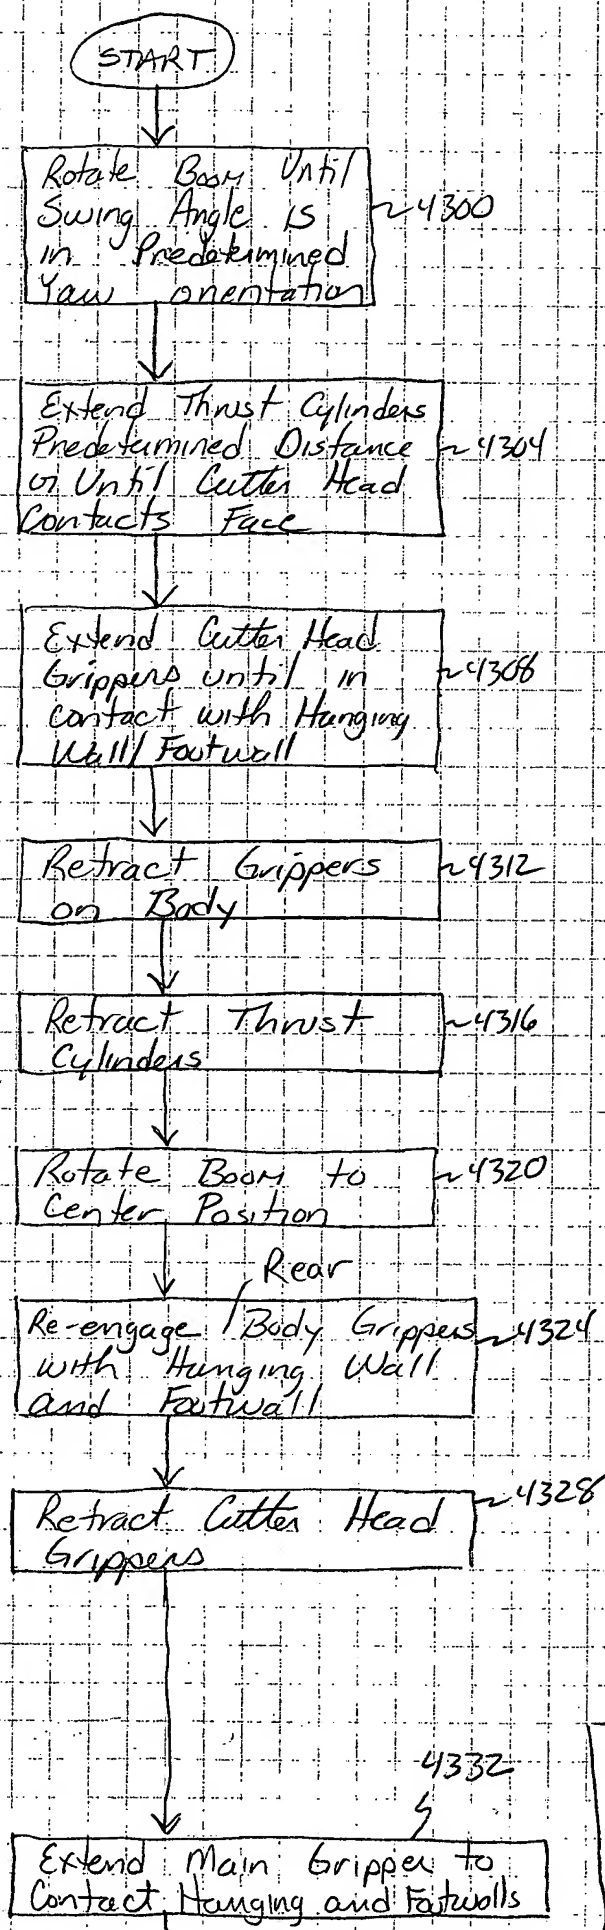 START
Rotate Boom Until
Swing Angle is
in Predetermined
Yaw orientation
4300
Extend Thrust Cylinders
Predetermined Distance
or Until Cutter Head
Contacts Face
4304
Extend Cutter Head
Grippers until in
contact with Hanging
Wall/Footwall
4308
Retract Grippers
on Body
4312
Retract Thrust
Cylinders
4316
Rotate Boom to
Center Position
4320
Rear
Re-engage / Body Grippers
with Hanging Wall
and Footwall
4324
Retract Cutter Head
Grippers
4328
4332
Extend Main Gripper to
Contact Hanging and Footwalls